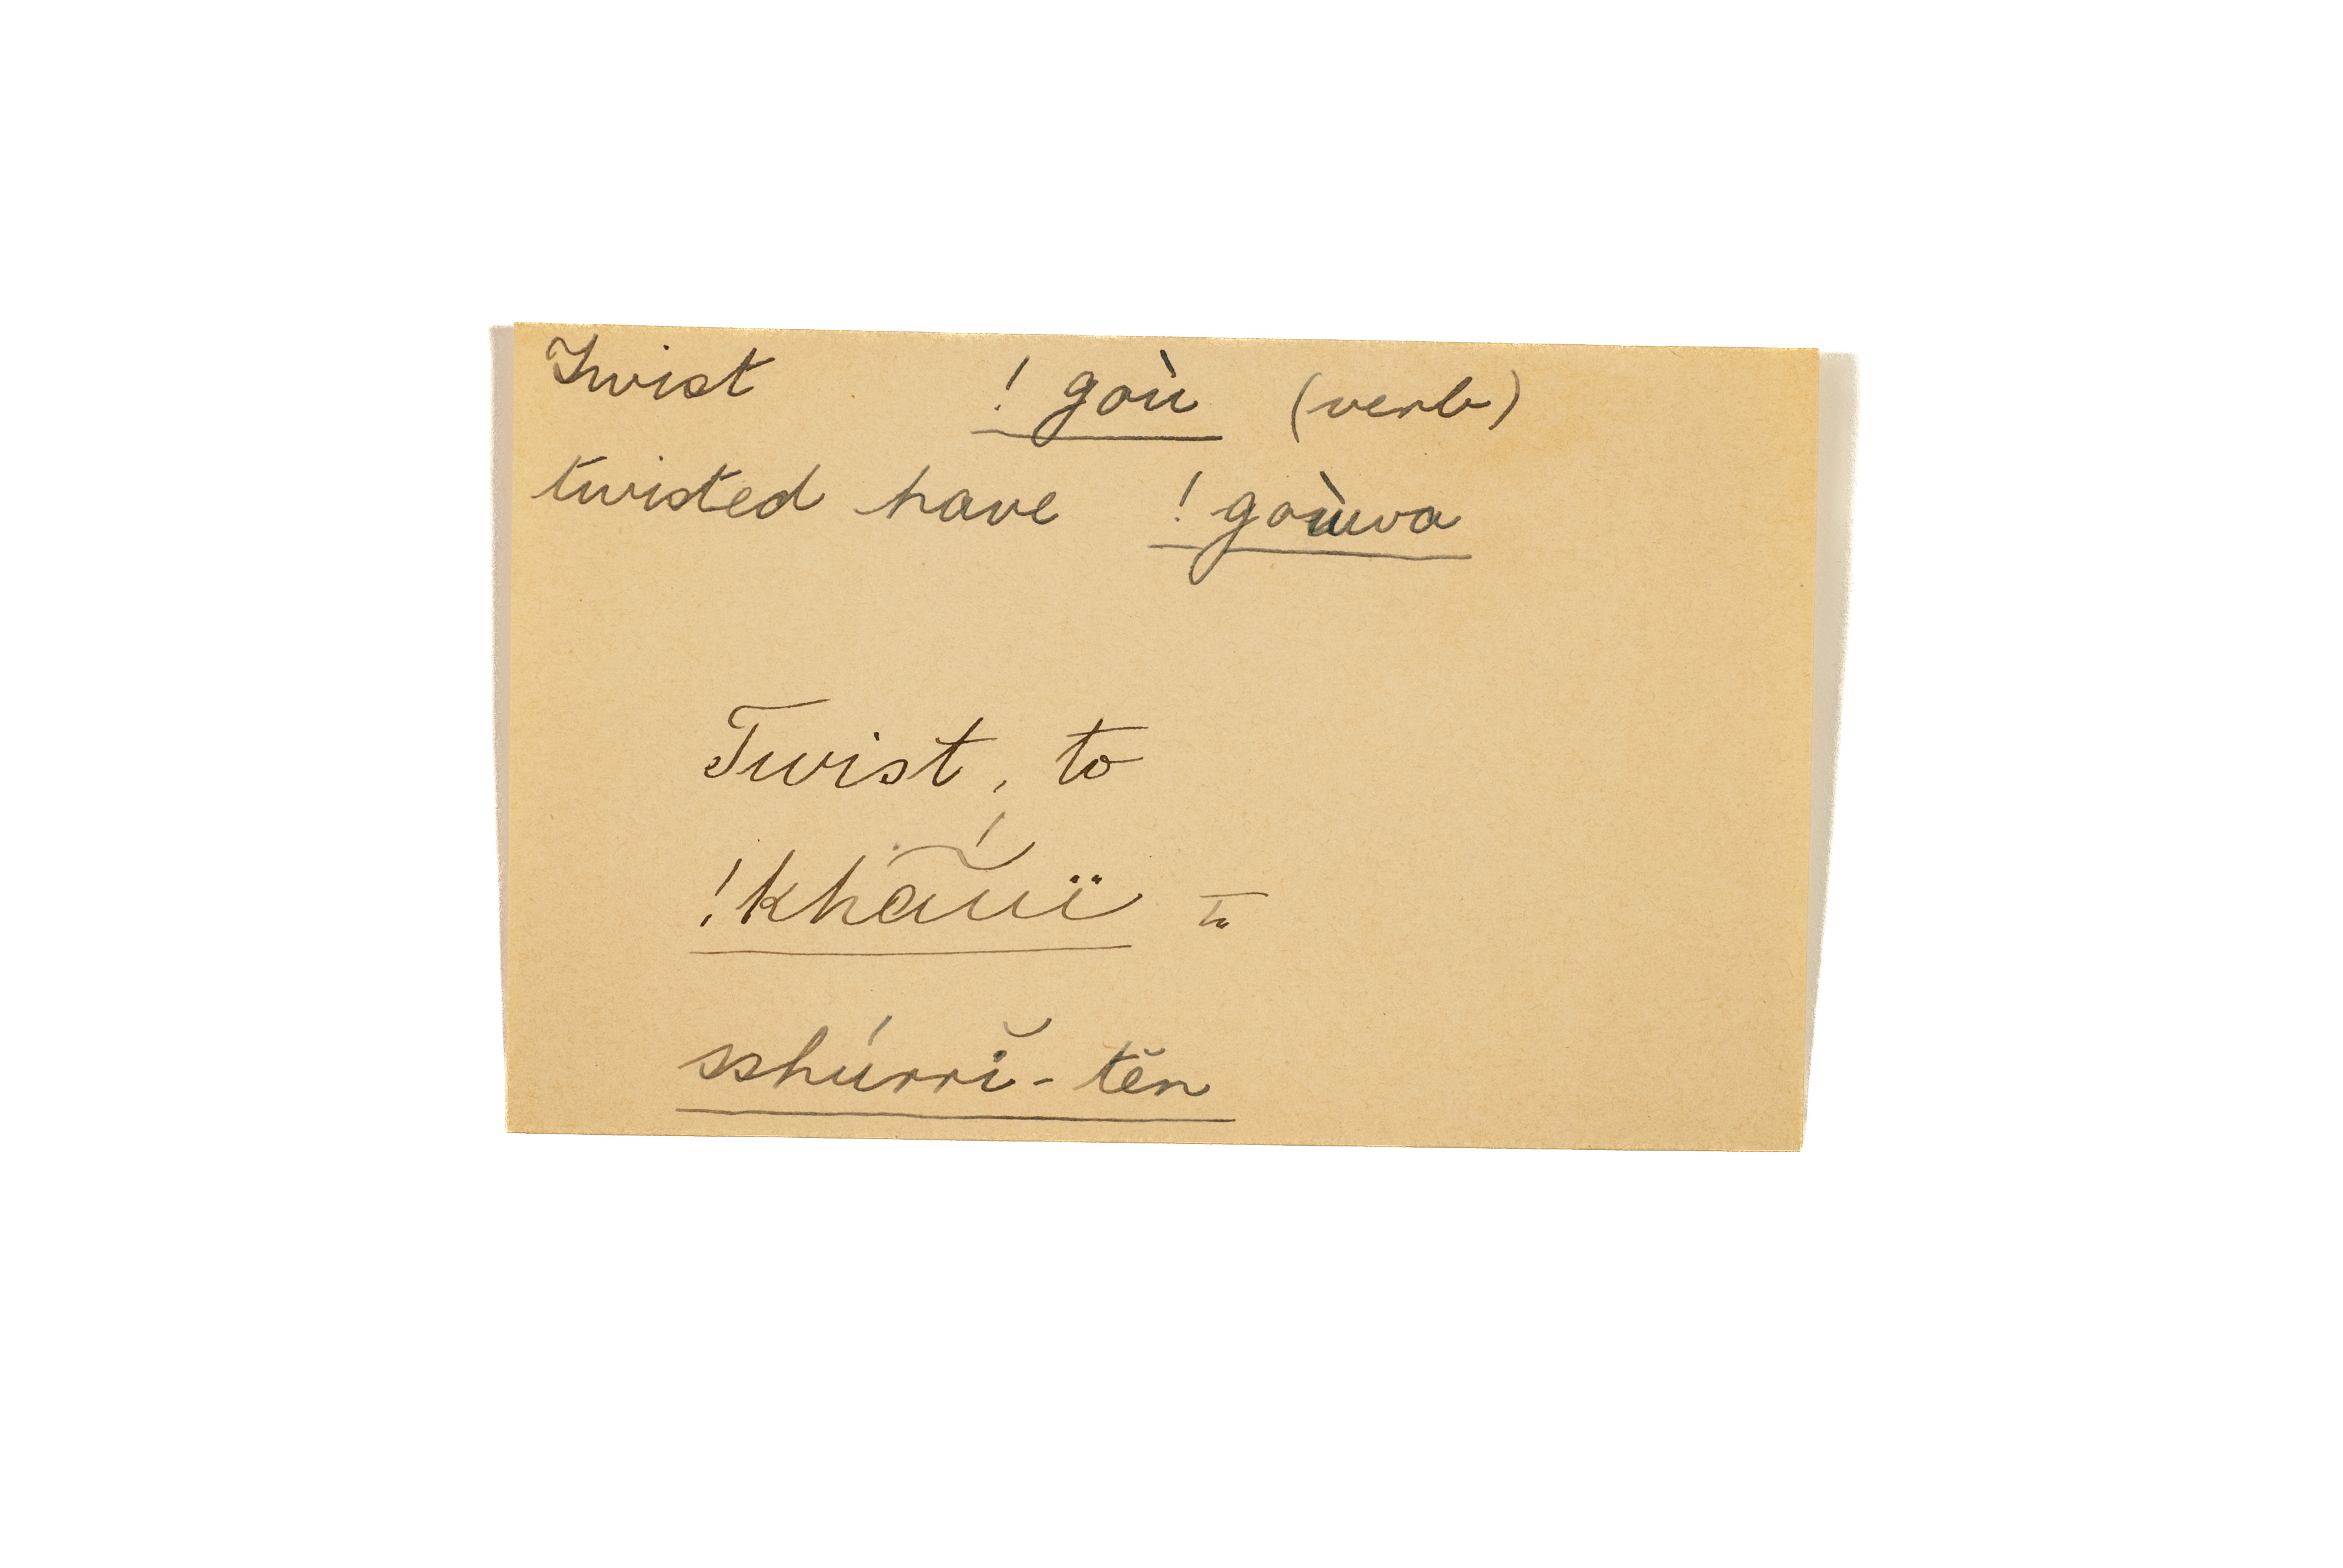 Twist ! goù (verb)
twisted have ! goùwa
Twist, to
!khãuï T̅
sshúrrĭ - tĕn